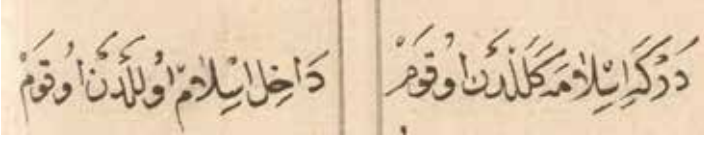 دَرْكَهِ اِسْلَامَه كَلَلْدَنْ اُو قَوْمْ دَاخِلِ اِسْلَامْ اُولَلْدَنْ اُو قَوْمْ